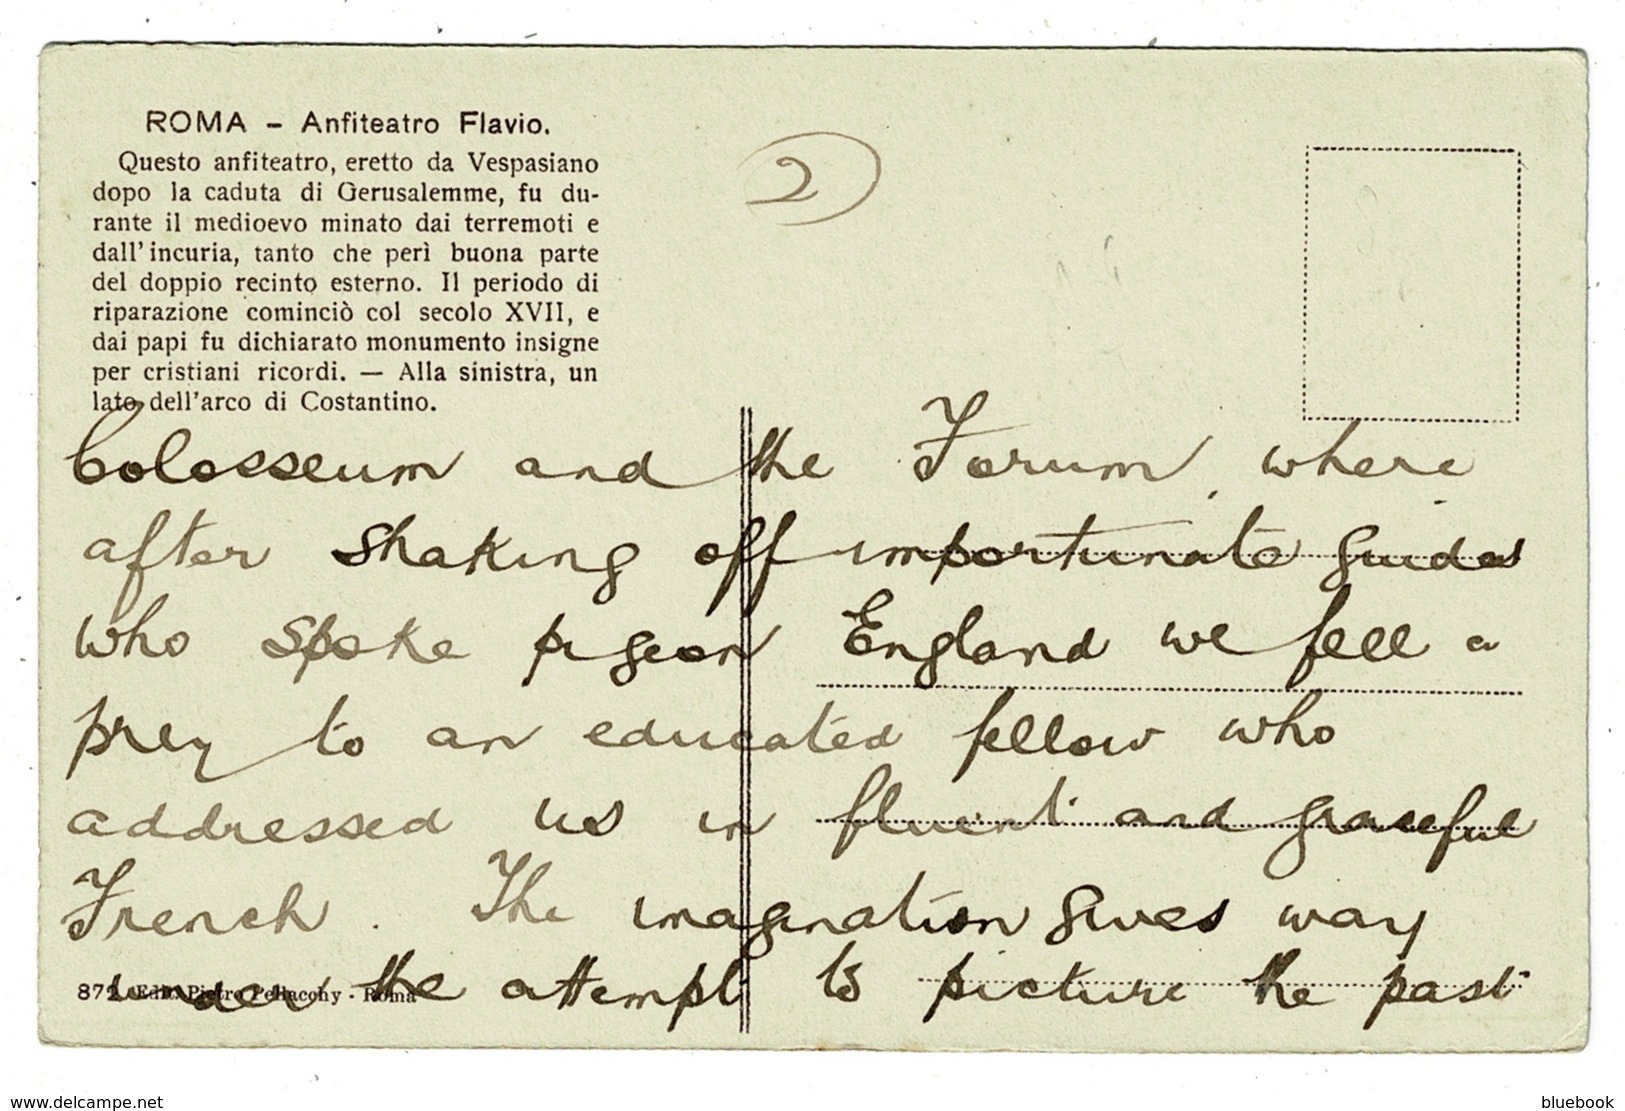 ROMA – Anfiteatro Flavio.
Questo anfiteatro, eretto da Vespasiano
dopo la caduta di Gerusalemme, fu du-
rante il medioevo minato dai terremoti e
dall'incuria, tanto che perì buona parte
del doppio recinto esterno. Il periodo di
riparazione cominciò col secolo XVII, e
dai papi fu dichiarato monumento insigne
per cristiani ricordi. — Alla sinistra, un
lato dell'arco di Costantino.
2
Colosseum and the Forum, where
after shaking off importunate guides
who spoke pigeon England we fell a
prey to an educated fellow who
addressed us in fluent and graceful
French. The imagination gives way
under the attempt to picture the past
872 - Ediz. Pietro Pellacchy - Roma
delcampe.net
bluebook